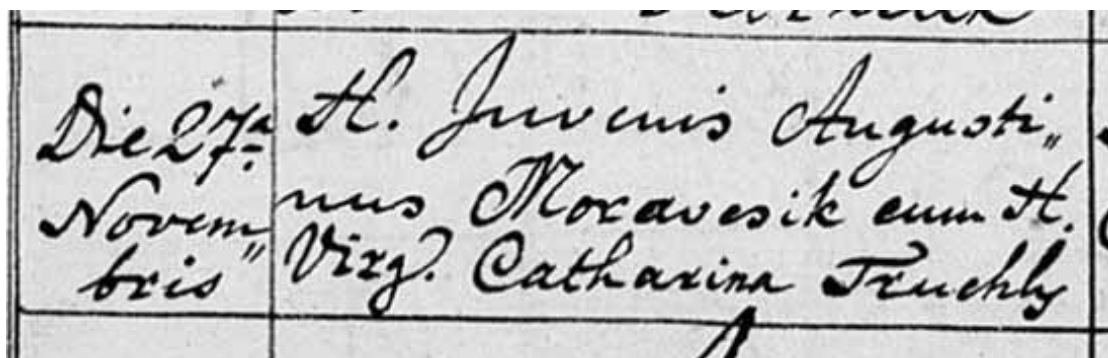 Die 27ª
Novem„
bris
H. Juvenis Augusti„
nus Moravcsik cum H.
Virg. Catharina Truchly